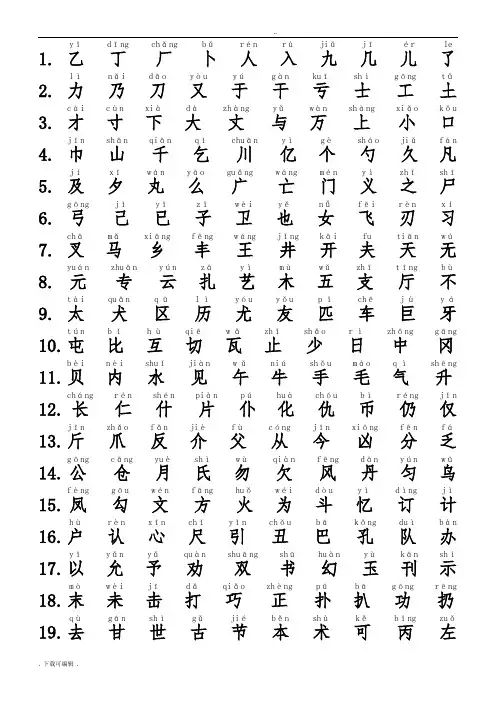 ..
yǐ dīng chǎng bǔ rén rù jiǔ jǐ ér le
1. 乙 丁 厂 卜 人 入 九 几 儿 了
lì nǎi dāo yòu yú gàn kuī shì gōng tǔ
2. 力 乃 刀 又 于 干 亏 士 工 土
cái cùn xià dà zhàng yǔ wàn shàng xiǎo kǒu
3. 才 寸 下 大 丈 与 万 上 小 口
jīn shān qiān qǐ chuān yì gè sháo jiǔ fán
4. 巾 山 千 乞 川 亿 个 勺 久 凡
jí xī wán yāo guǎng wáng mén yì zhī shī
5. 及 夕 丸 么 广 亡 门 义 之 尸
gōng jǐ yǐ zǐ wèi yě nǚ fēi rèn xí
6. 弓 己 已 子 卫 也 女 飞 刃 习
chā mǎ xiāng fēng wáng jǐng kāi fu tiān wú
7. 叉 马 乡 丰 王 井 开 夫 天 无
yuán zhuān yún zā yì mù wǔ zhī tīng bù
8. 元 专 云 扎 艺 木 五 支 厅 不
tài quǎn qū lì yóu yǒu pǐ chē jù yá
9. 太 犬 区 历 尤 友 匹 车 巨 牙
tún bǐ hù qiē wǎ zhǐ shǎo rì zhōng gāng
10. 屯 比 互 切 瓦 止 少 日 中 冈
bèi nèi shuǐ jiàn wǔ niú shǒu máo qì shēng
11. 贝 内 水 见 午 牛 手 毛 气 升
cháng rén shén piàn pú huà chóu bì réng jǐn
12. 长 仁 什 片 仆 化 仇 币 仍 仅
jīn zhǎo fǎn jiè fù cóng jīn xiōng fēn fá
13. 斤 爪 反 介 父 从 今 凶 分 乏
gōng cāng yuè shì wù qiàn fēng dān yún wū
14. 公 仓 月 氏 勿 欠 风 丹 匀 乌
fèng gōu wén fāng huǒ wéi dòu yì dìng jì
15. 凤 勾 文 方 火 为 斗 忆 订 计
hù rèn xīn chǐ yǐn chǒu bā kǒng duì bàn
16. 户 认 心 尺 引 丑 巴 孔 队 办
yǐ yǔn yǔ quàn shuāng shū huàn yù kān shì
17. 以 允 予 劝 双 书 幻 玉 刊 示
mò wèi jī dǎ qiǎo zhèng pū bā gōng rēng
18. 末 未 击 打 巧 正 扑 扒 功 扔
qù gān shì gǔ jié běn shù kě bǐng zuǒ
19. 去 甘 世 古 节 本 术 可 丙 左
. 下载可编辑 .